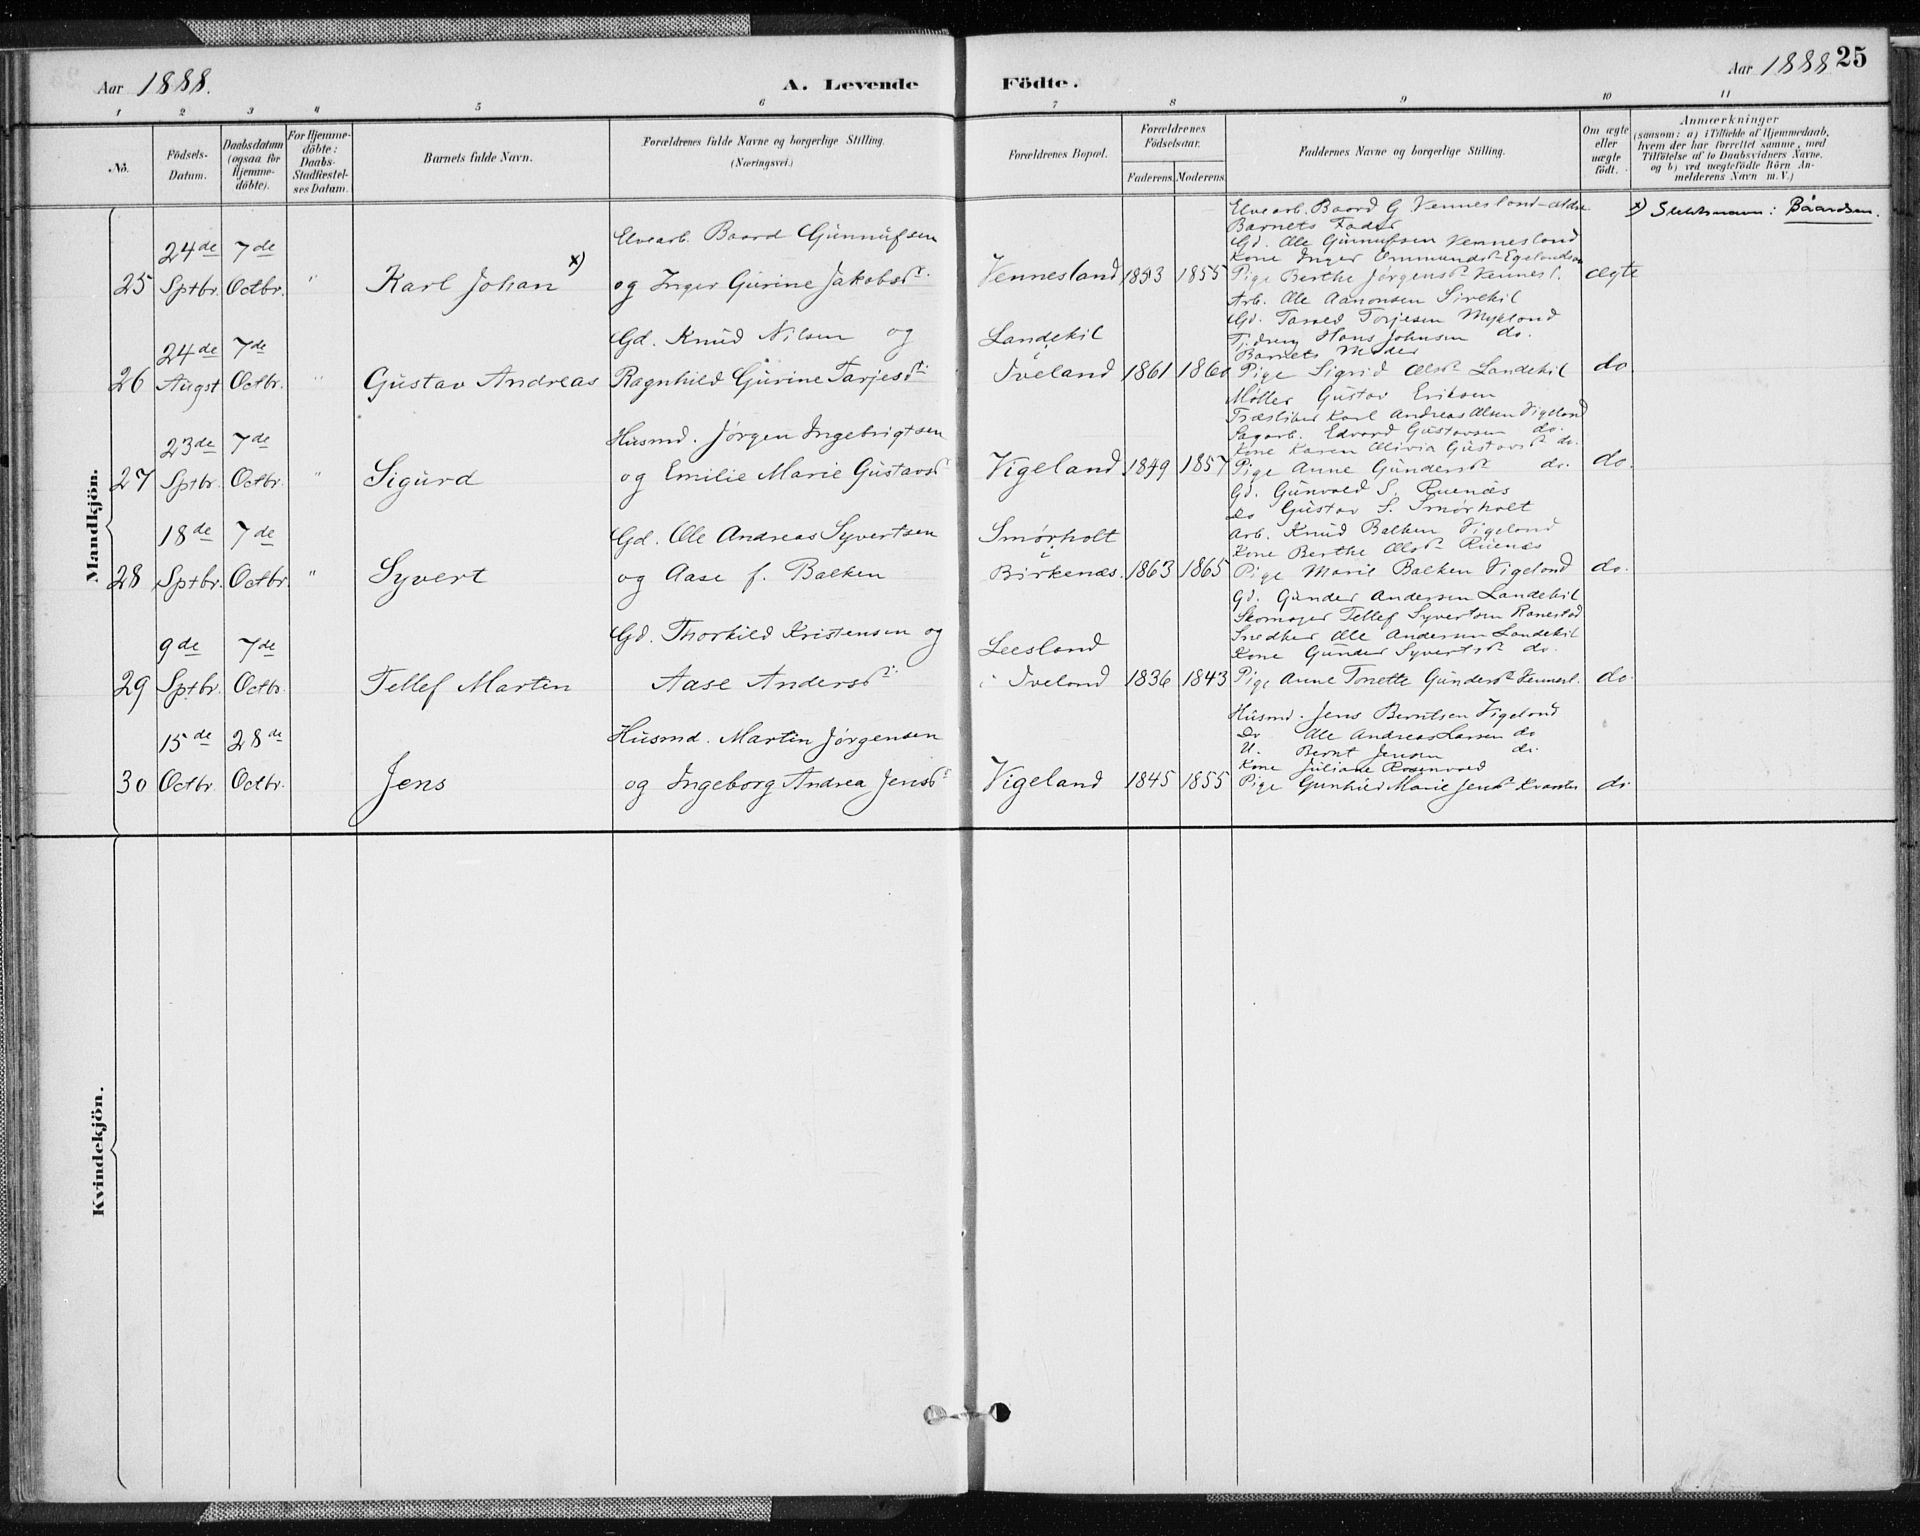 Aar 1888.
A. Levende Födte.
Aar 1888 25
1 2 3 4 5 6 7 8 9 10 11
No.
Födsels-Datum.
Daabsdatum (ogsaa for Hjemme-döbte).
For Hjemme-döbte: Daabs-Stadfæstel-ses Datum.
Barnets fulde Navn.
Forældrenes fulde Navne og borgerlige Stilling.
(Næringsvei.)
Forældrenes Bopæl.
Forældrenes Födselsaar.
Faderens. Moderens.
Faddernes Navne og borgerlige Stilling.
Om ægte eller uægte födt.
Anmærkninger
(saasom: a) i Tilfælde af Hjemmedaab, hvem der har forrettet samme, med Tilföielse af to Daabsvidners Navne, og b) ved uægtefödte Börn An-melderens Navn m. V.)
Mandkjön.
25 24de Sptbr. 7de Octbr. " Karl Johan x)
Elvearb. Baard Gunnufsen
og Inger Gurine Jakobsdr.
Vennesland 1853 1855
Elvearb. Baard G. Vennesland-
Barnets Fader
Gd. Ole Gunnufsen Vennesland
Kone Inger
Pige Berthe Jørgensdr. Vennesl.
ægte
x) Slektsnavn: Båardsen.
26 24de Augst 7de Octbr. " Gustav Andreas
Gd. Knud Nilsen og
Ragnhild Gurine Tarjesdr.
Landekil
i
Iveland 1861 1860
Arb. Ole Aanonsen
Gd. Torjesen Mykland
Hans Johnsen do.
Barnets Moder
Pige Sigrid Olsdr. Landekil
do.
27 23de Sptbr. 7de Octbr. " Sigurd
Husmd. Jørgen Ingebrigtsen
og Emilie Marie Gustavsdr.
Vigeland 1849 1857
Møller Gustav Eriksen
Karl Andreas Olsen Vigeland
Sagarb. Edvard Gustavsen do.
Kone Karen Olivia Gustavsdr. do.
Pige Anne Gundersdr. do.
do.
28 18de Sptbr. 7de Octbr. " Syvert
Gd. Ole Andreas Syvertsen
og Aase f. Balken
Smørholt
i
Birkenæs. 1863 1865
Gd. Gunvald S. Ruenæs
Do Gustav S. Smørholt
Arb. Knud Balken Vigeland
Kone Berthe Olsdr. Ruenæs
Pige Marie Balken Vigeland
do.
29 9de Sptbr. 7de Octbr. Tellef Martin
Gd. Thorkild Kristensen og
Aase Andersdr.
Leesland
i Iveland 1836 1843
Gd. Gunder Andersen Landekil
Skomager Tellef Syvertsen Ranestad
Snedker Ole Andersen Landekil
Kone Gunder Syvertsdr. do.
Pige Anne Tonette Gundersdr. Vennesl.
do.
30 15de Octbr 28de Octbr. Jens
Husmd. Martin Jørgensen
og Ingeborg Andrea Jensdr.
Vigeland 1845 1855
Husmd. Jens Berntsen Vigeland
Do Ole Andreas Larsen do
U. Bernt Jensen do.
Kone Juliane Rosenvold
Pige Gunhild Marie Jensdr.
do
Kvindekjön.